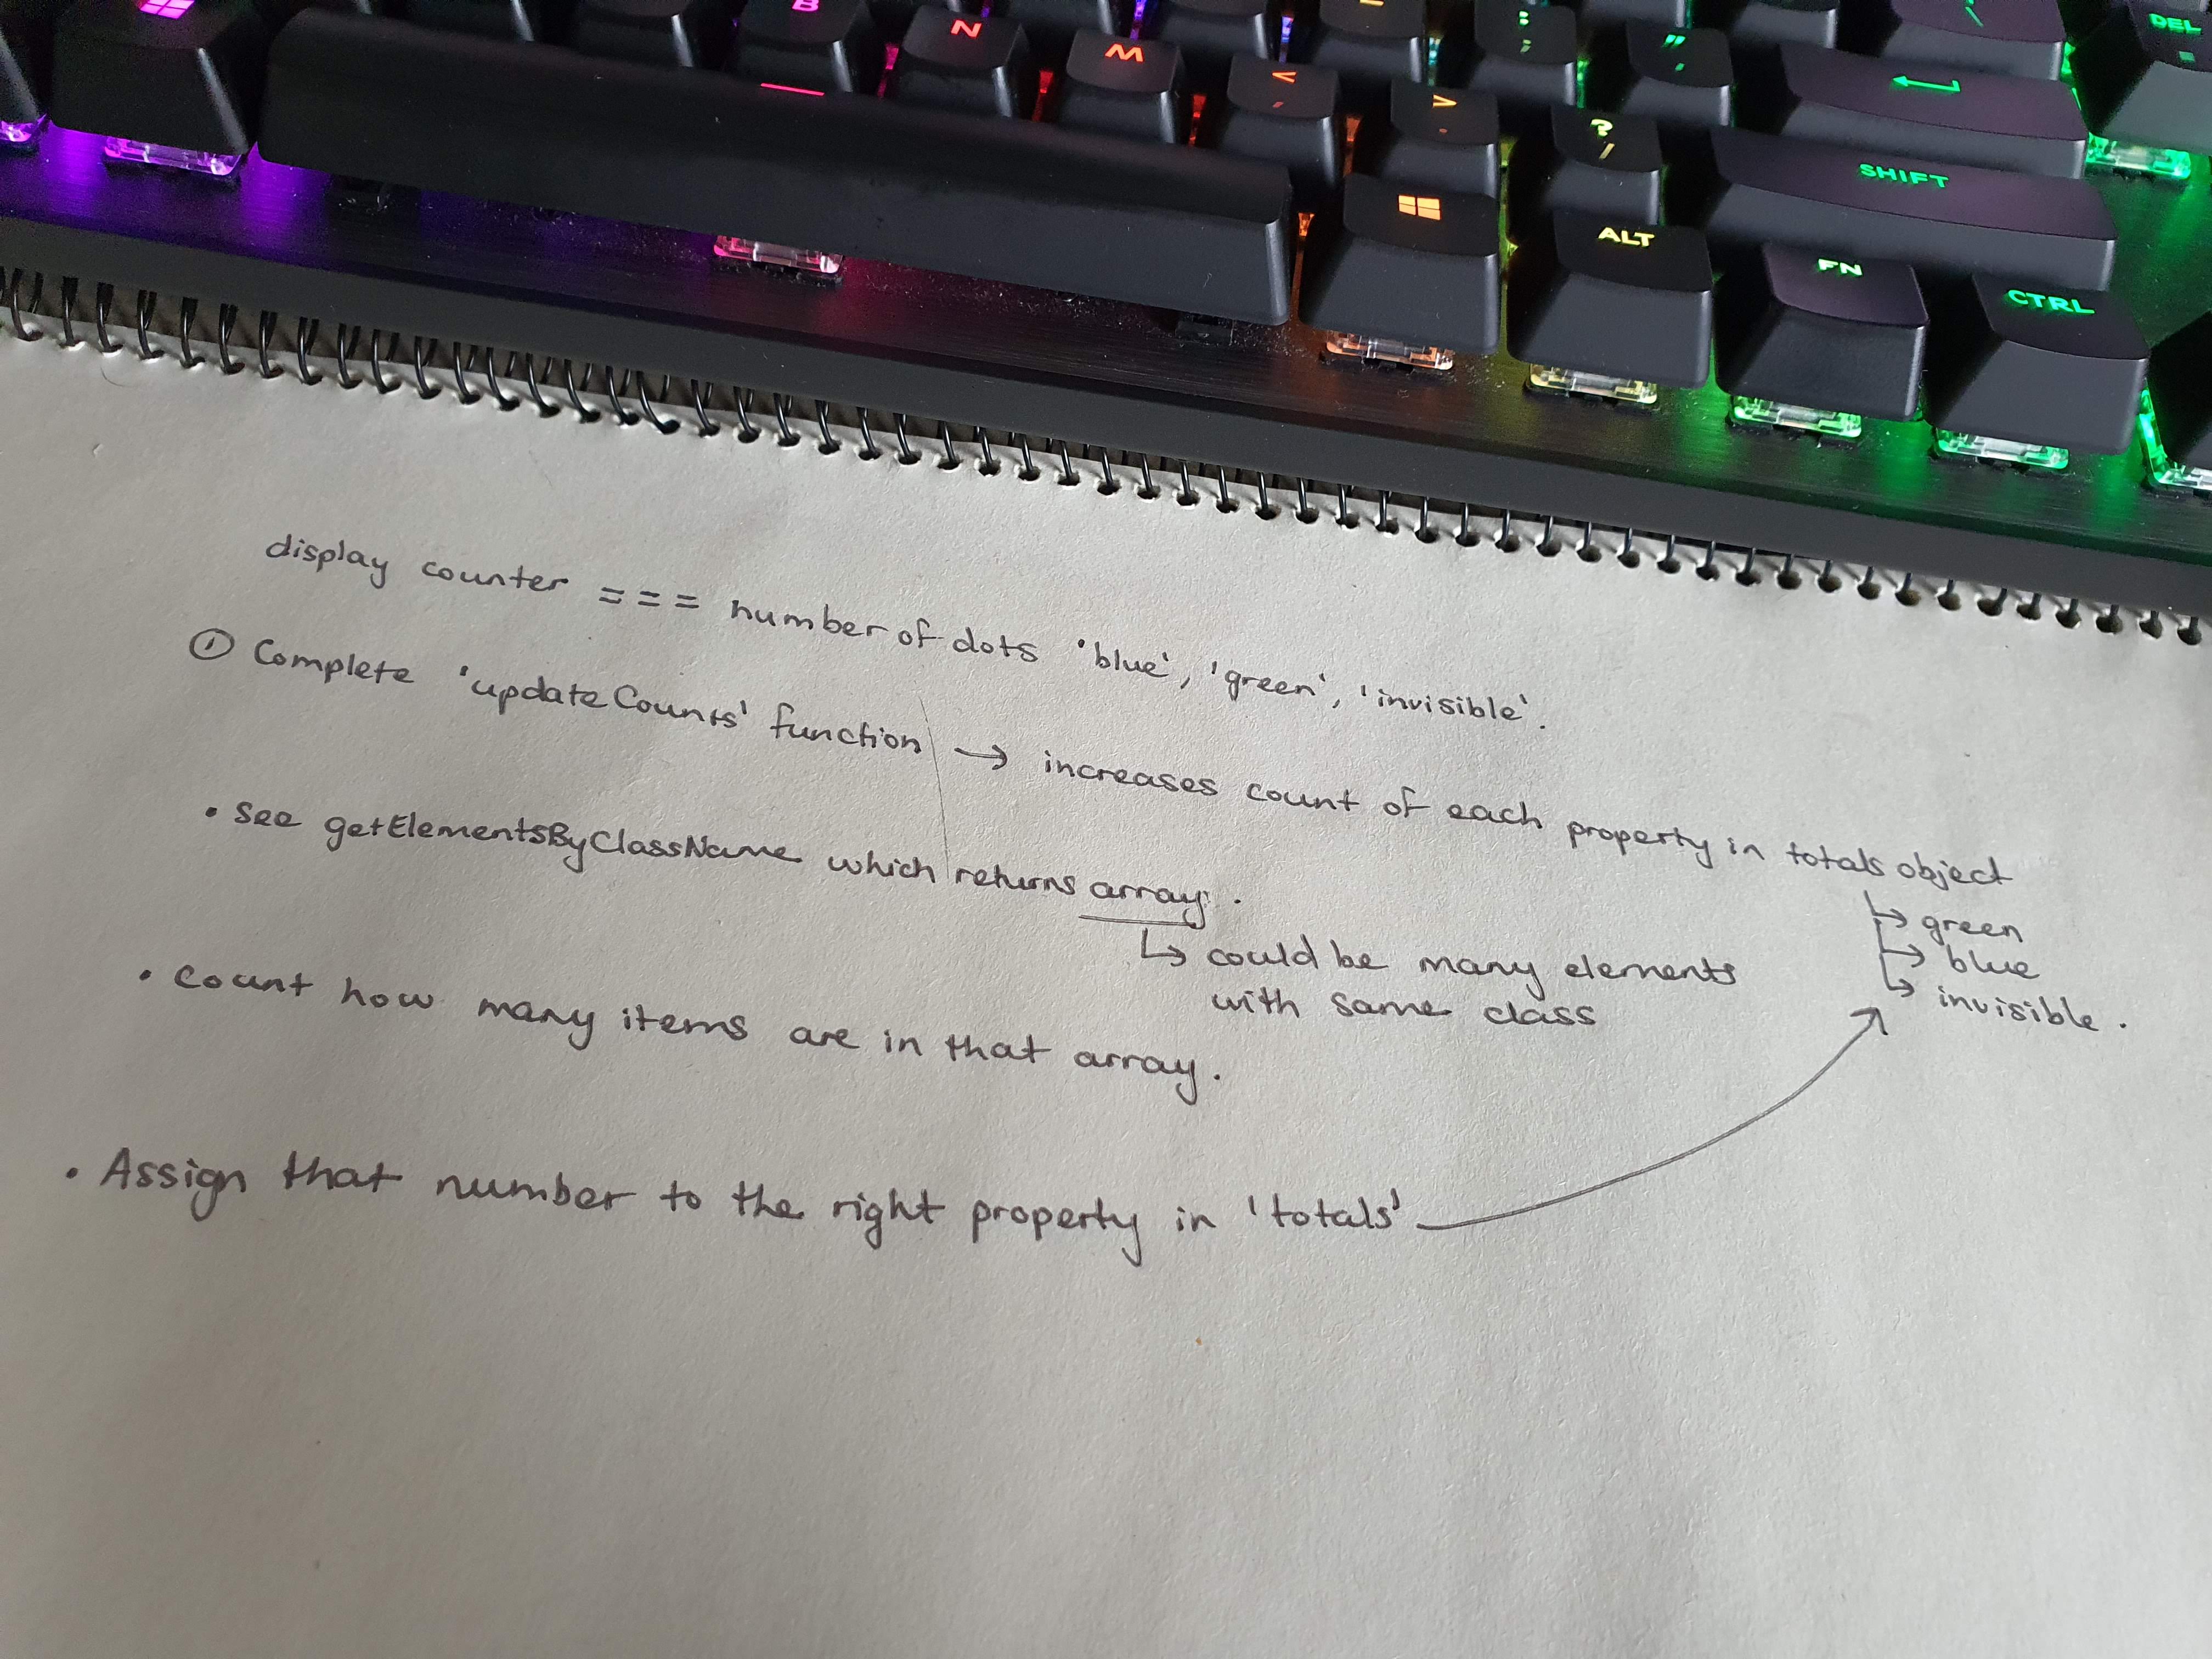 B
N
M
<
,
>
.
?
/
:
;
"
,
\
DEL
SHIFT
ALT
FN
CTRL
display counter === number of dots 'blue', 'green', 'invisible'.
① Complete 'updateCounts' function → increases count of each property in totals object
↳ green
↳ blue
↳ invisible.
• see getElementsByClassName which returns array.
↳ could be many elements
with same class
• count how many items are in that array.
• Assign that number to the right property in 'totals'